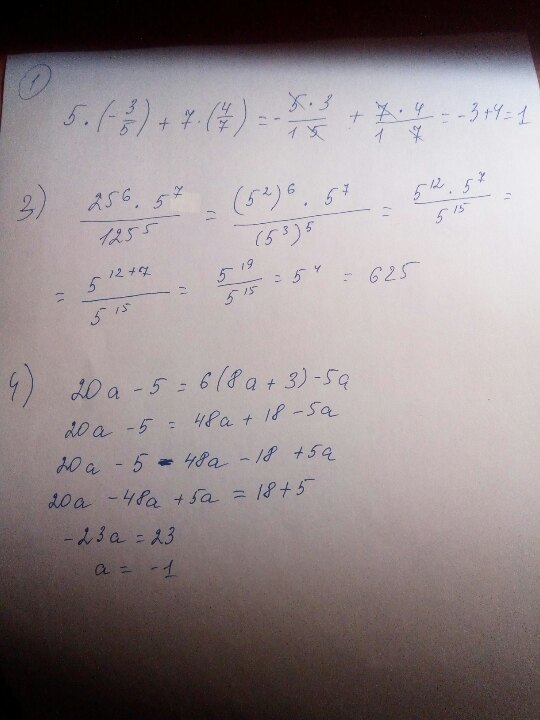 1
5 · (-3/5) + 7 · (4/7) = - 5 · 3 / 1 5 + 7 · 4 / 1 7 = -3+4=1
3) 25⁶ · 5⁷ / 125⁵ = (5²)⁶ · 5⁷ / (5³)⁵ = 5¹² · 5⁷ / 5¹⁵ =
= 5¹²⁺⁷ / 5¹⁵ = 5¹⁹ / 5¹⁵ = 5⁴ = 625
4) 20a - 5 = 6(8a + 3) - 5a
20a - 5 = 48a + 18 - 5a
20a - 5 - 48a - 18 + 5a
20a - 48a + 5a = 18 + 5
-23a = 23
a = -1